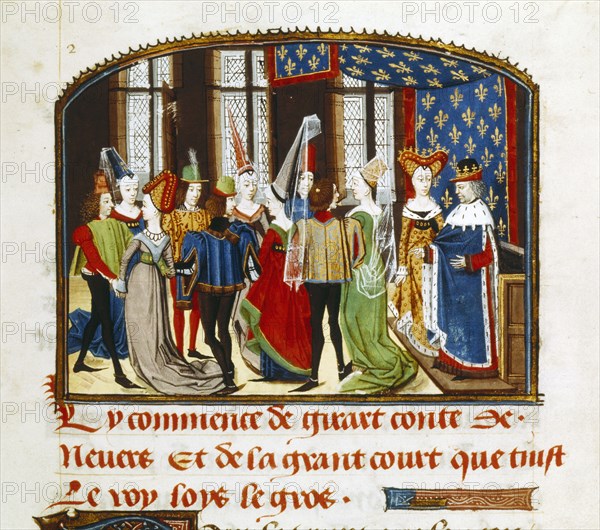 2
Cy commence de girart conte de.
Nevers Et de la grant court que tinst
Le roy loys le gros.